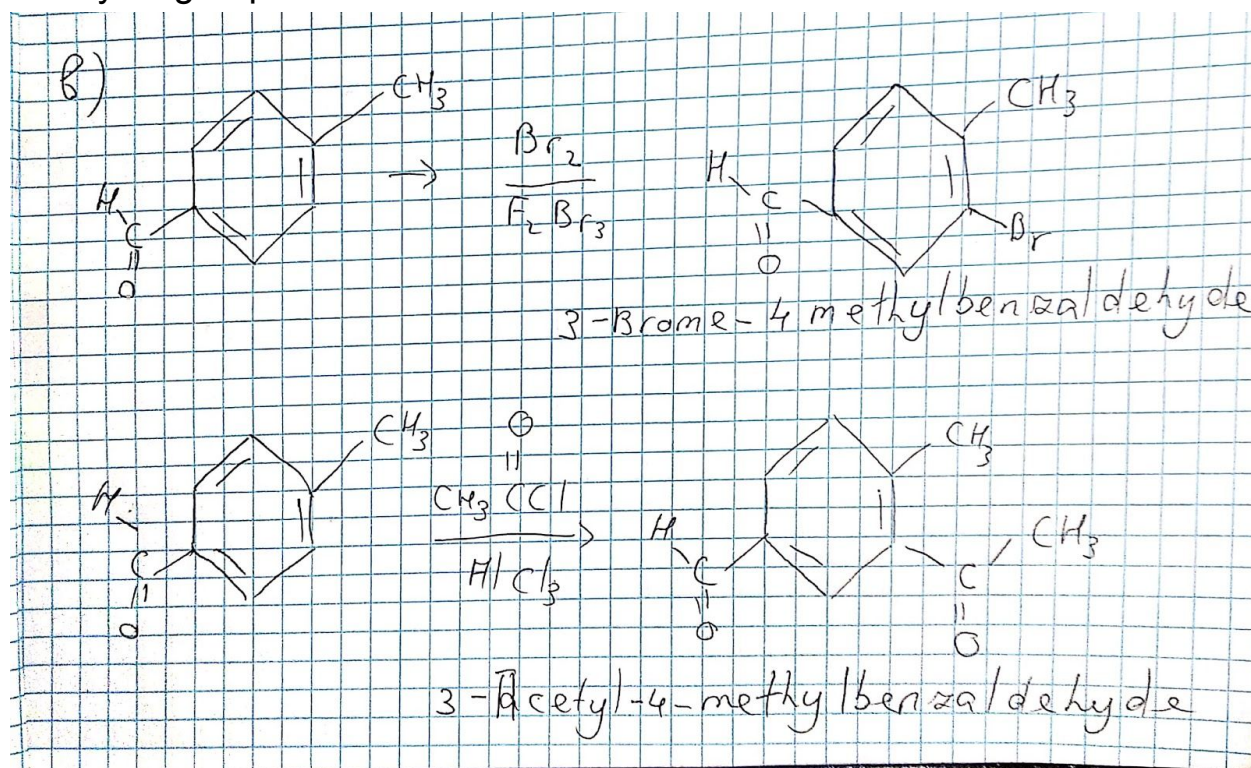 в)
CH3
H
C
O
Br2
F2Br3
CH3
H
C
O
Br
3-Brome-4 methylbenzaldehyde
CH3
H
C
O
O
CH3CCl
AlCl3
CH3
H
C
O
C
CH3
O
3-Acetyl-4-methylbenzaldehyde